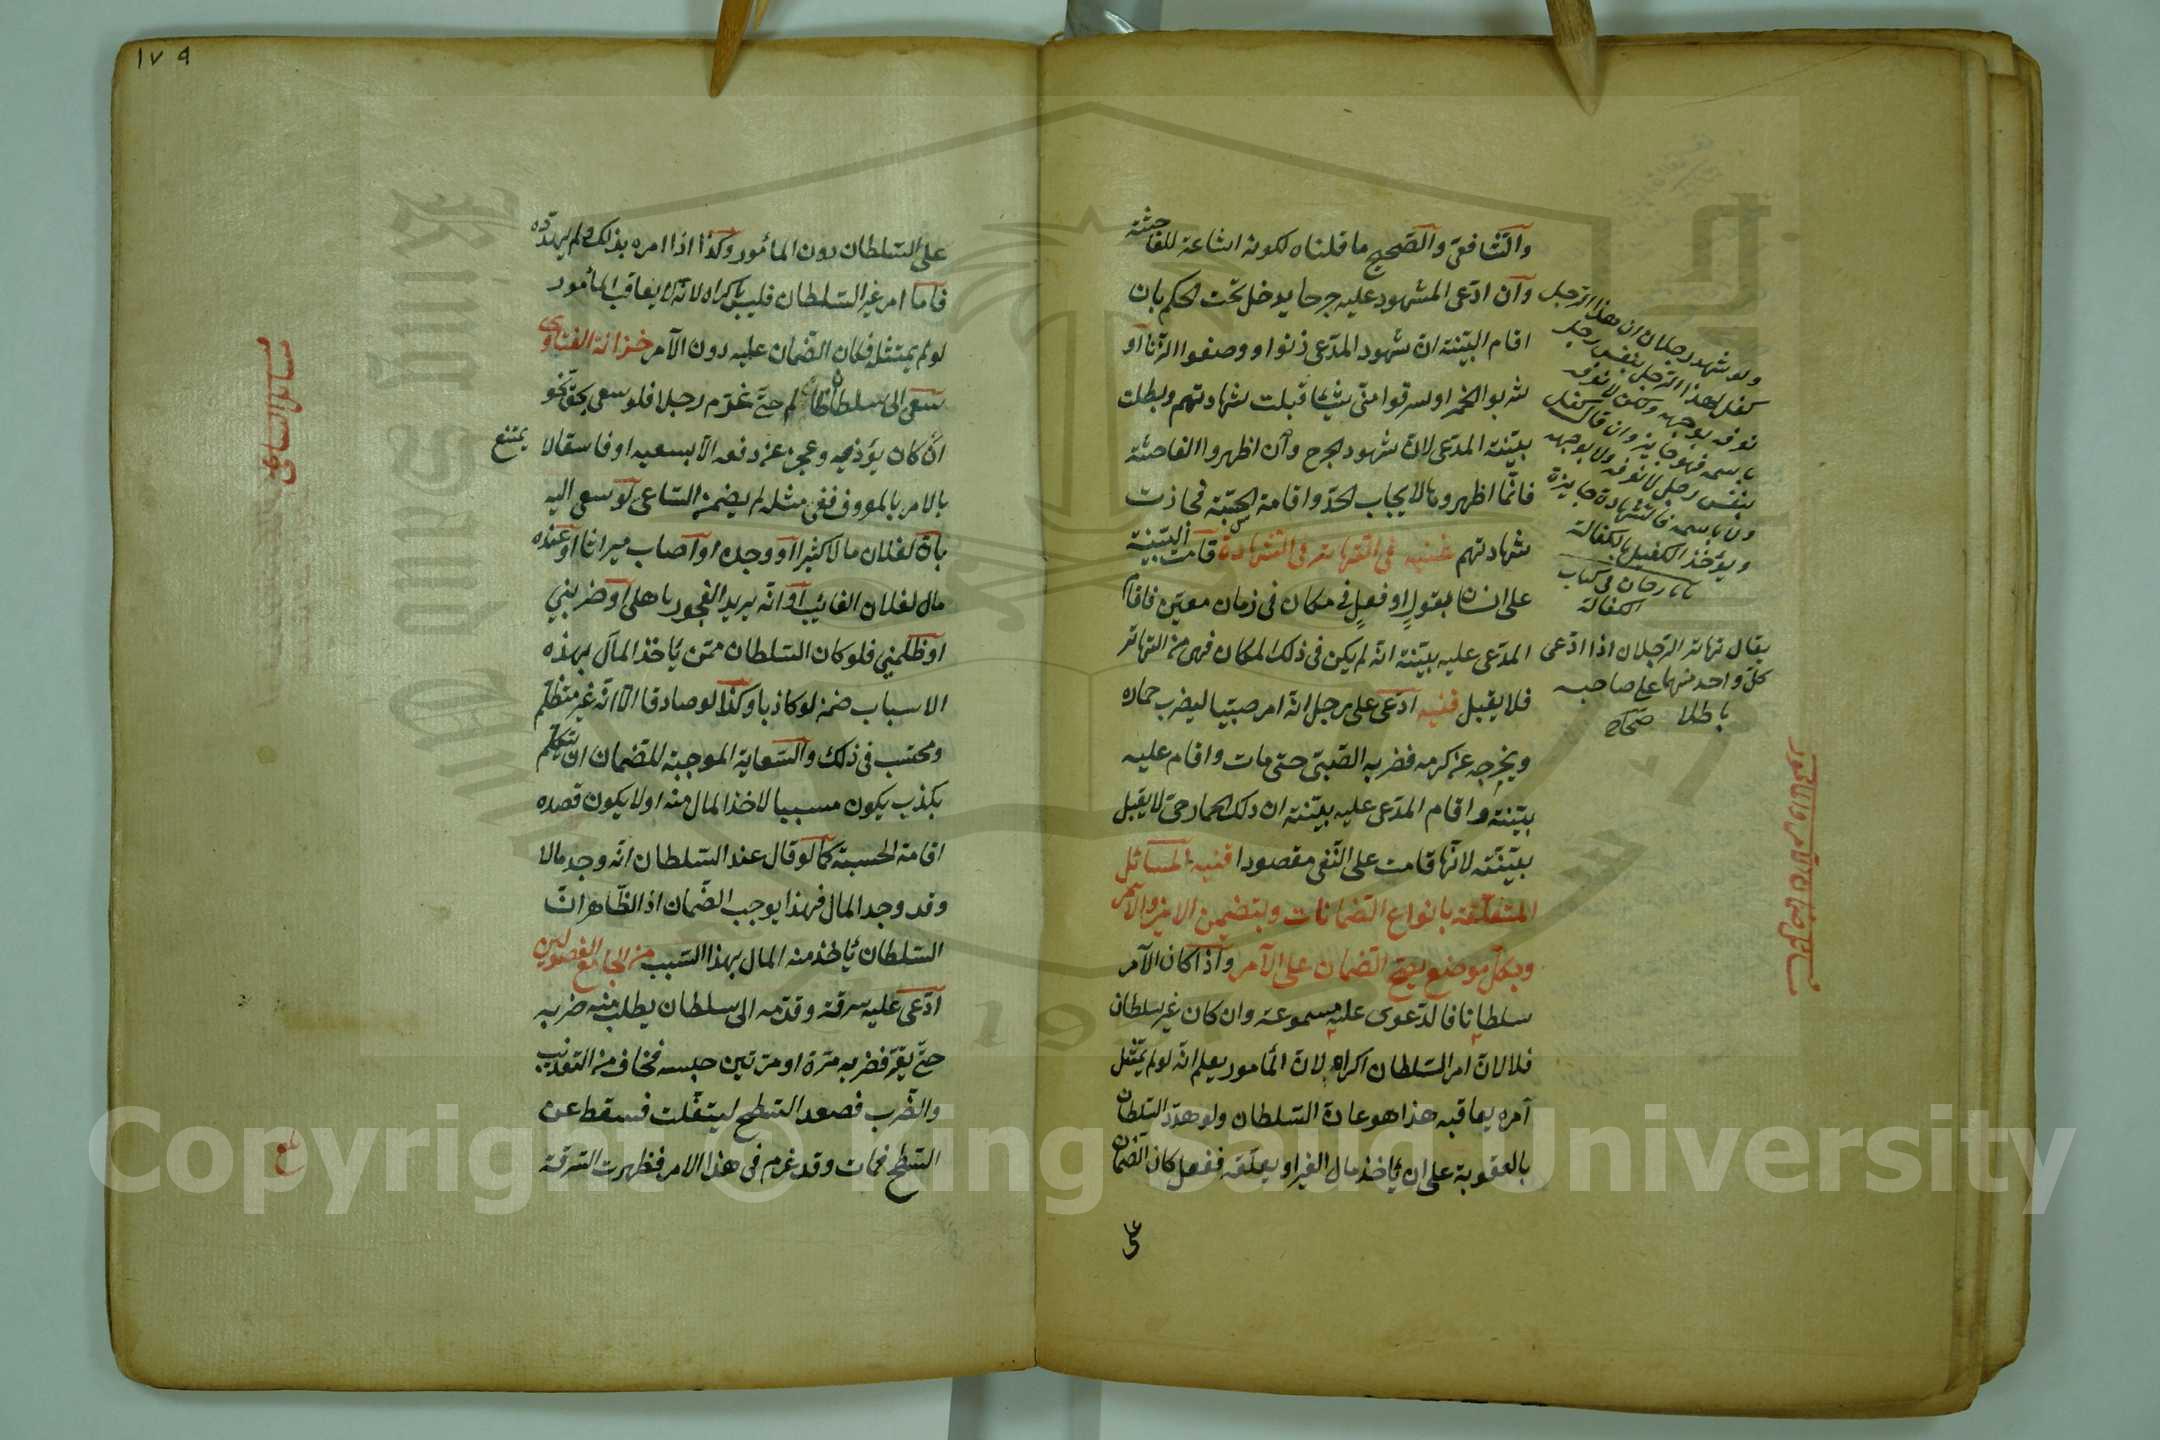 والشافعي والصحيح ما قلناه لكونه اشاعة للفاحشة
وان ادعى المشهود عليه جرحا يدخل تحت الحكم بان
اقام البينة ان شهود المدعى زنوا او وصفوا الزنا او
شربوا الخمر او سرقوا منى شيئا قبلت شهادتهم وبطلت
بينة المدعى لان شهود الجرح وان اظهروا الفاحشة
فانما اظهروها لايجاب الحد واقامة الحسبة فجازت
شهادتهم فى التهاتر فى الشهادة قامت البينة
على انسان بقول او فعل فى مكان فى زمان معين فاقام
المدعى عليه ببينة انه لم يكن فى ذلك المكان فهى من التهاتر
فلا يقبل قنيه ادعى على رجل انه امر صبيا ليضرب حماره
ويخرجه عن كرمه فضربه الصبى حتى مات واقام عليه
بينة واقام المدعى عليه بينة ان ذلك الحمار حى لا يقبل
بينته لانها قامت على النفى مقصودا قنيه المسائل
المتعلقة بانواع الضمانات وبتضمين الامر والآمر
وبكل موضع يصح الضمان على الآمر واذا كان الآمر
سلطانا فالدعوى عليه مسموعة وان كان غير سلطان
فلا لان امر السلطان اكراه لان المأمور يعلم انه لو لم يمتثل
آمره يعاقبه هذا هو عادة السلطان ولو هدد السلطان
بالعقوبة على ان يأخذ مال الغير او ففعل كان الضمان
على
ولو شهد رجلان ان هذا الرجل
كفل لهذا الرجل بنفس رجل
نعرفه بوجهه ولكن لا نعرفه
باسمه فهو جايز وان قالا كفل
بنفس رجل لا نعرفه ولا بوجهه
ولا باسمه فالشهادة جايزة
ويؤخذ الكفيل بالكفالة
فى كتاب
الكفالة
يقال تهاتر الرجلان اذا ادعى
كل واحد منهما على صاحبه
باطلا صحاح
١٧٩
على السلطان دون المأمور وكذا اذا امره بذلك ولم يهدده
فاما امر غير السلطان فليس باكراه لانه لا يعاقب المأمور
لو لم يمتثل فكان الضمان عليه دون الآمر خزانة الفتاوى
سعى الى سلطان ظالم حتى غرم رجلا فلو سعى بحق نحو
ان كان يؤذيه وعجز عن دفعه الا بسعيه او فاسقا لا يمتنع
بالامر بالمعروف ففى مثله لم يضمن الساعى لو سعى اليه
بان لفلان مالا كثيرا او وجده او اصاب ميراثا او عنده
مال لفلان الغائب او انه يريد الفجور باهلى او ضربنى
او ظلمنى فلو كان السلطان ممن يأخذ المال بهذه
الاسباب ضمن لو كاذبا وكذا لو صادقا الا انه غير متظلم
ومحتسب فى ذلك والسعاية الموجبة للضمان ان يتكلم
بكذب يكون مسببا لاخذ المال منه او لا يكون قصده
اقامة الحسبة كما لو قال عند السلطان انه وجد مالا
وقد وجد المال فهذا يوجب الضمان اذ الظاهر ان
السلطان يأخذ منه المال بهذا السبب من الجامع الفصولين
ادعى عليه سرقة وقدمه الى سلطان يطلب منه ضربه
حتى يقر فضربه مرة او مرتين حبسه فخاف من التعذيب
والضرب فصعد السطح ليتفلت فسقط عن
السطح فمات وقد غرم فى هذا الامر فظهرت السرقة
مسائل الساعى
Copyright © King Saud University